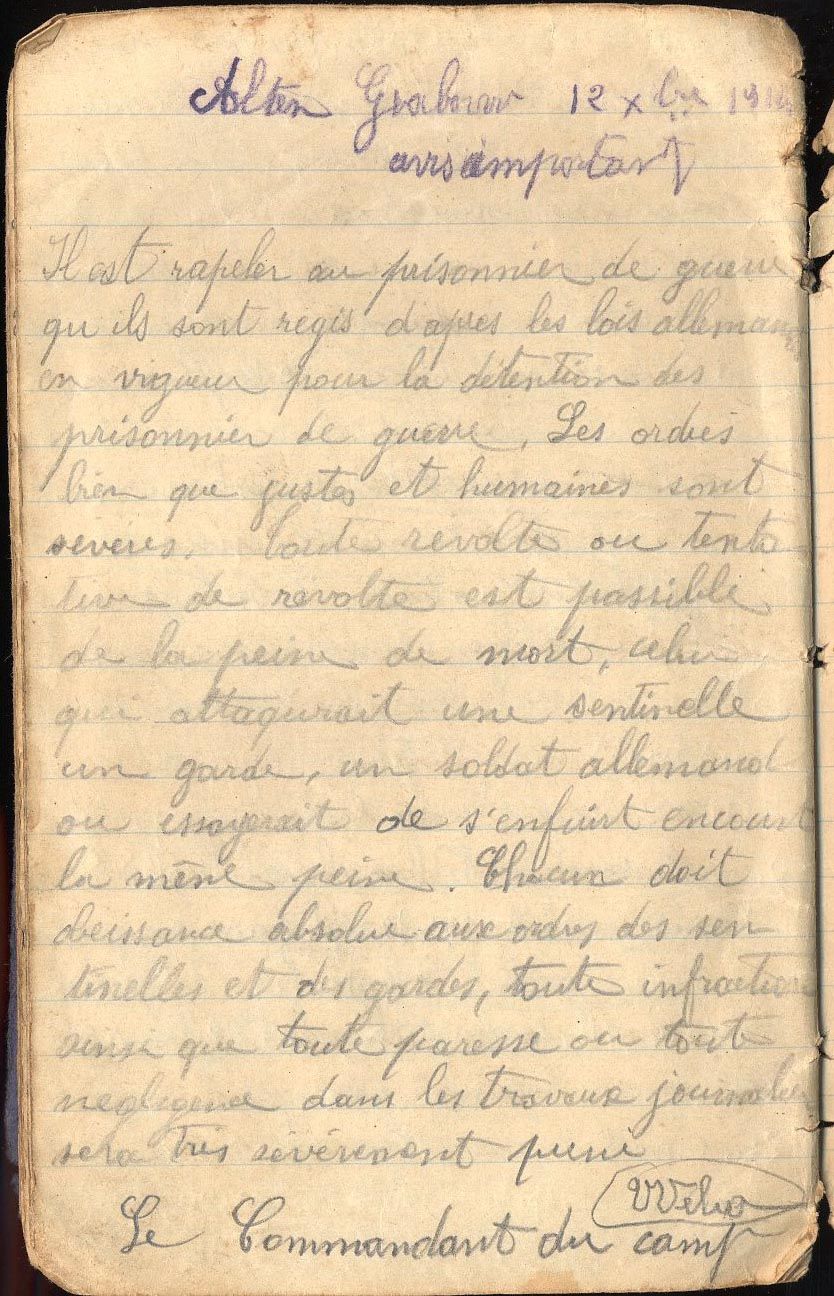 Alten Grabow 12 xbre 191
avis important
Il est rapeler au prisonnier de guerre
qu ils sont regis d'apres les lois allemandes
en vigueur pour la détention des
prisonnier de guerre. Les ordres
bien que justes et humaines sont
severes. toute révolte ou tenta
tive de révolte est passible
de la peine de mort, celui
qui attaquerait une sentinelle
un garde, un soldat allemand
ou essayerait de s'enfuirt encourt
la même peine. Chacun doit
obeissance absolue aux ordres des sen
tinelles et des gardes, toute infraction
ainsi que toute paresse ou toute
negligence dans les travaux journalier
sera très sévérement puni
Le Commandant du camp